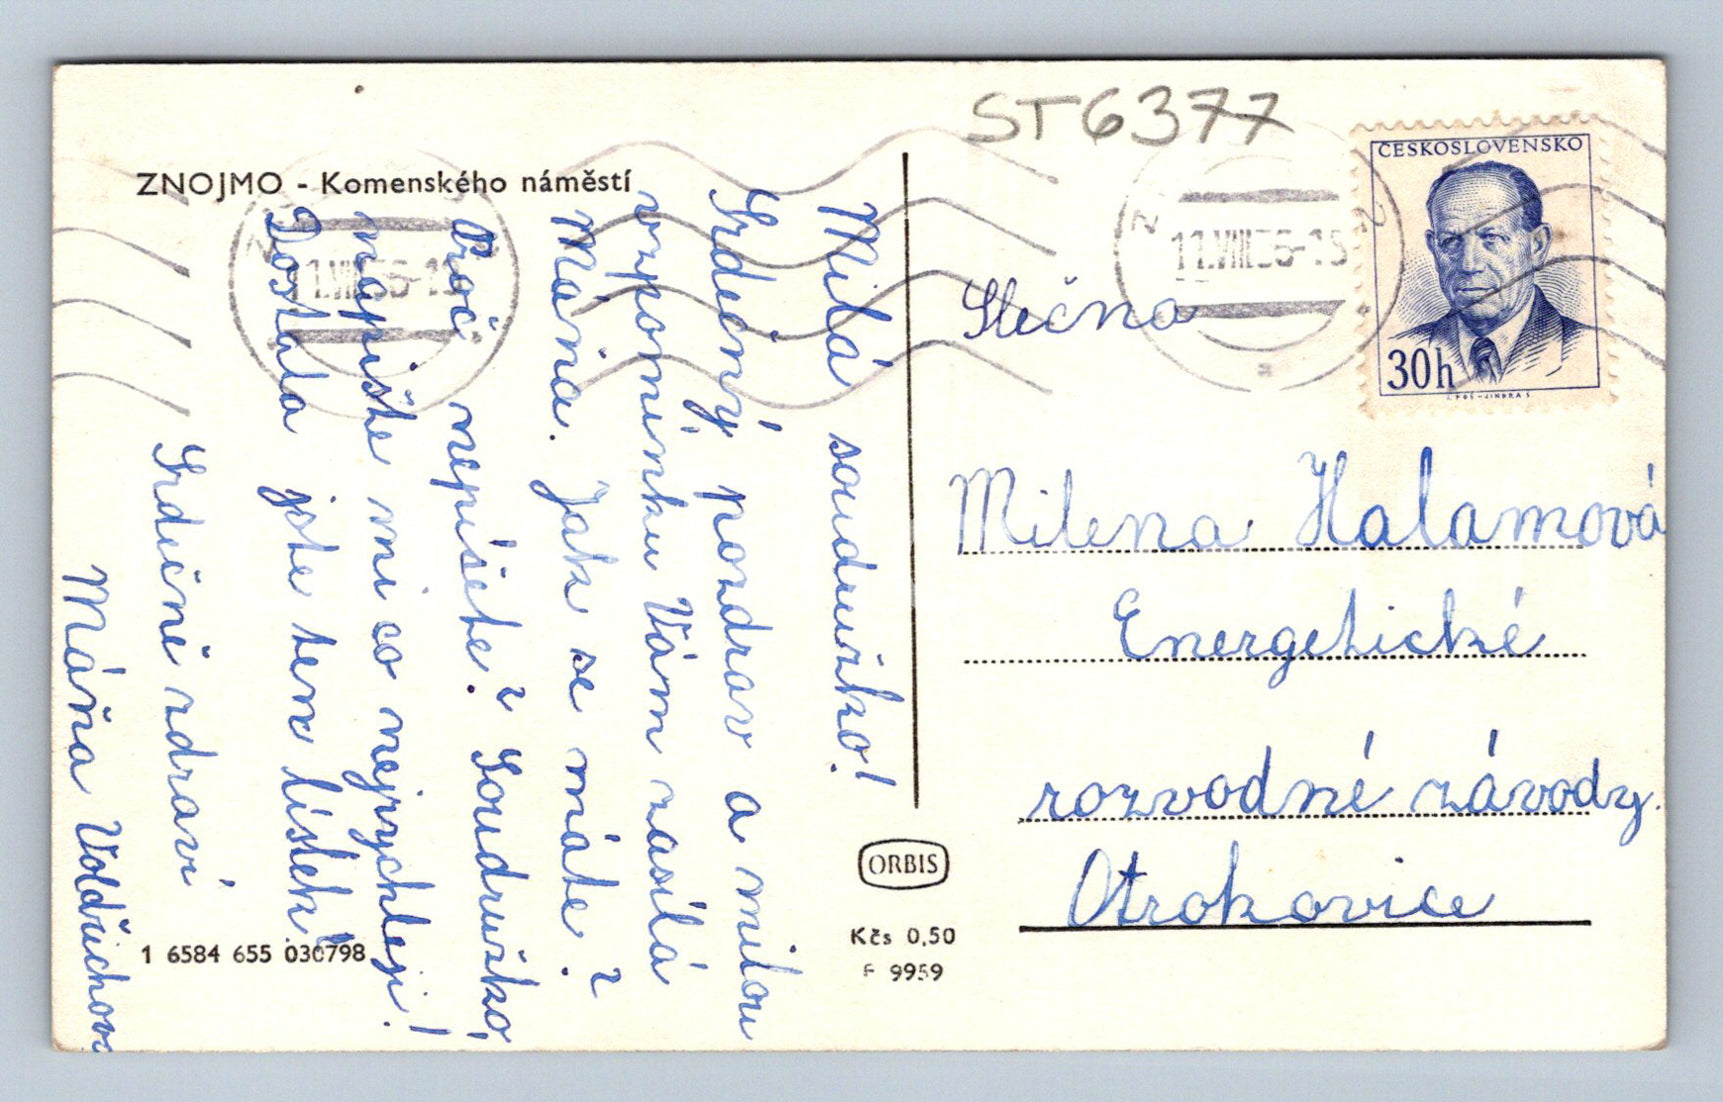 ST6377
ZNOJMO - Komenského náměstí
ČESKOSLOVENSKO
30h
11.VIII.56-15
Milá soudružko!
Srdečný pozdrav a milou
vzpomínku Vám zasílá
Máňa. Jak se máte?
Proč nepíšete? Soudružko,
napište mi co nejrychleji!
Dostala jste ten lístek?
Srdečně zdraví
Máňa Voldřichov
Slečna
Milena Halamová
Energetické
rozvodné závody.
Otrokovice
ORBIS
Kčs 0,50
F 9959
1 6584 655 030798